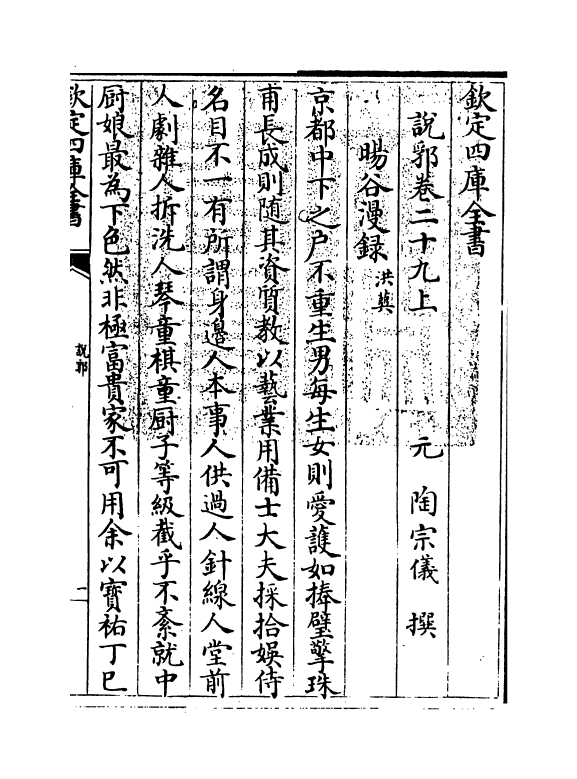 欽定四庫全書
説郛卷二十九上　元　陶宗儀　撰
暘谷漫録 洪巽
京都中下之户不重生男每生女則愛護如捧璧擎珠
甫長成則随其資質教以藝業用備士大夫採拾娱侍
名目不一有所謂身邊人本事人供過人針線人堂前
人劇雜人拆洗人琴童棋童厨子等級截乎不紊就中
厨娘最為下色然非極富貴家不可用余以寶祐丁巳
欽定四庫全書
説郛